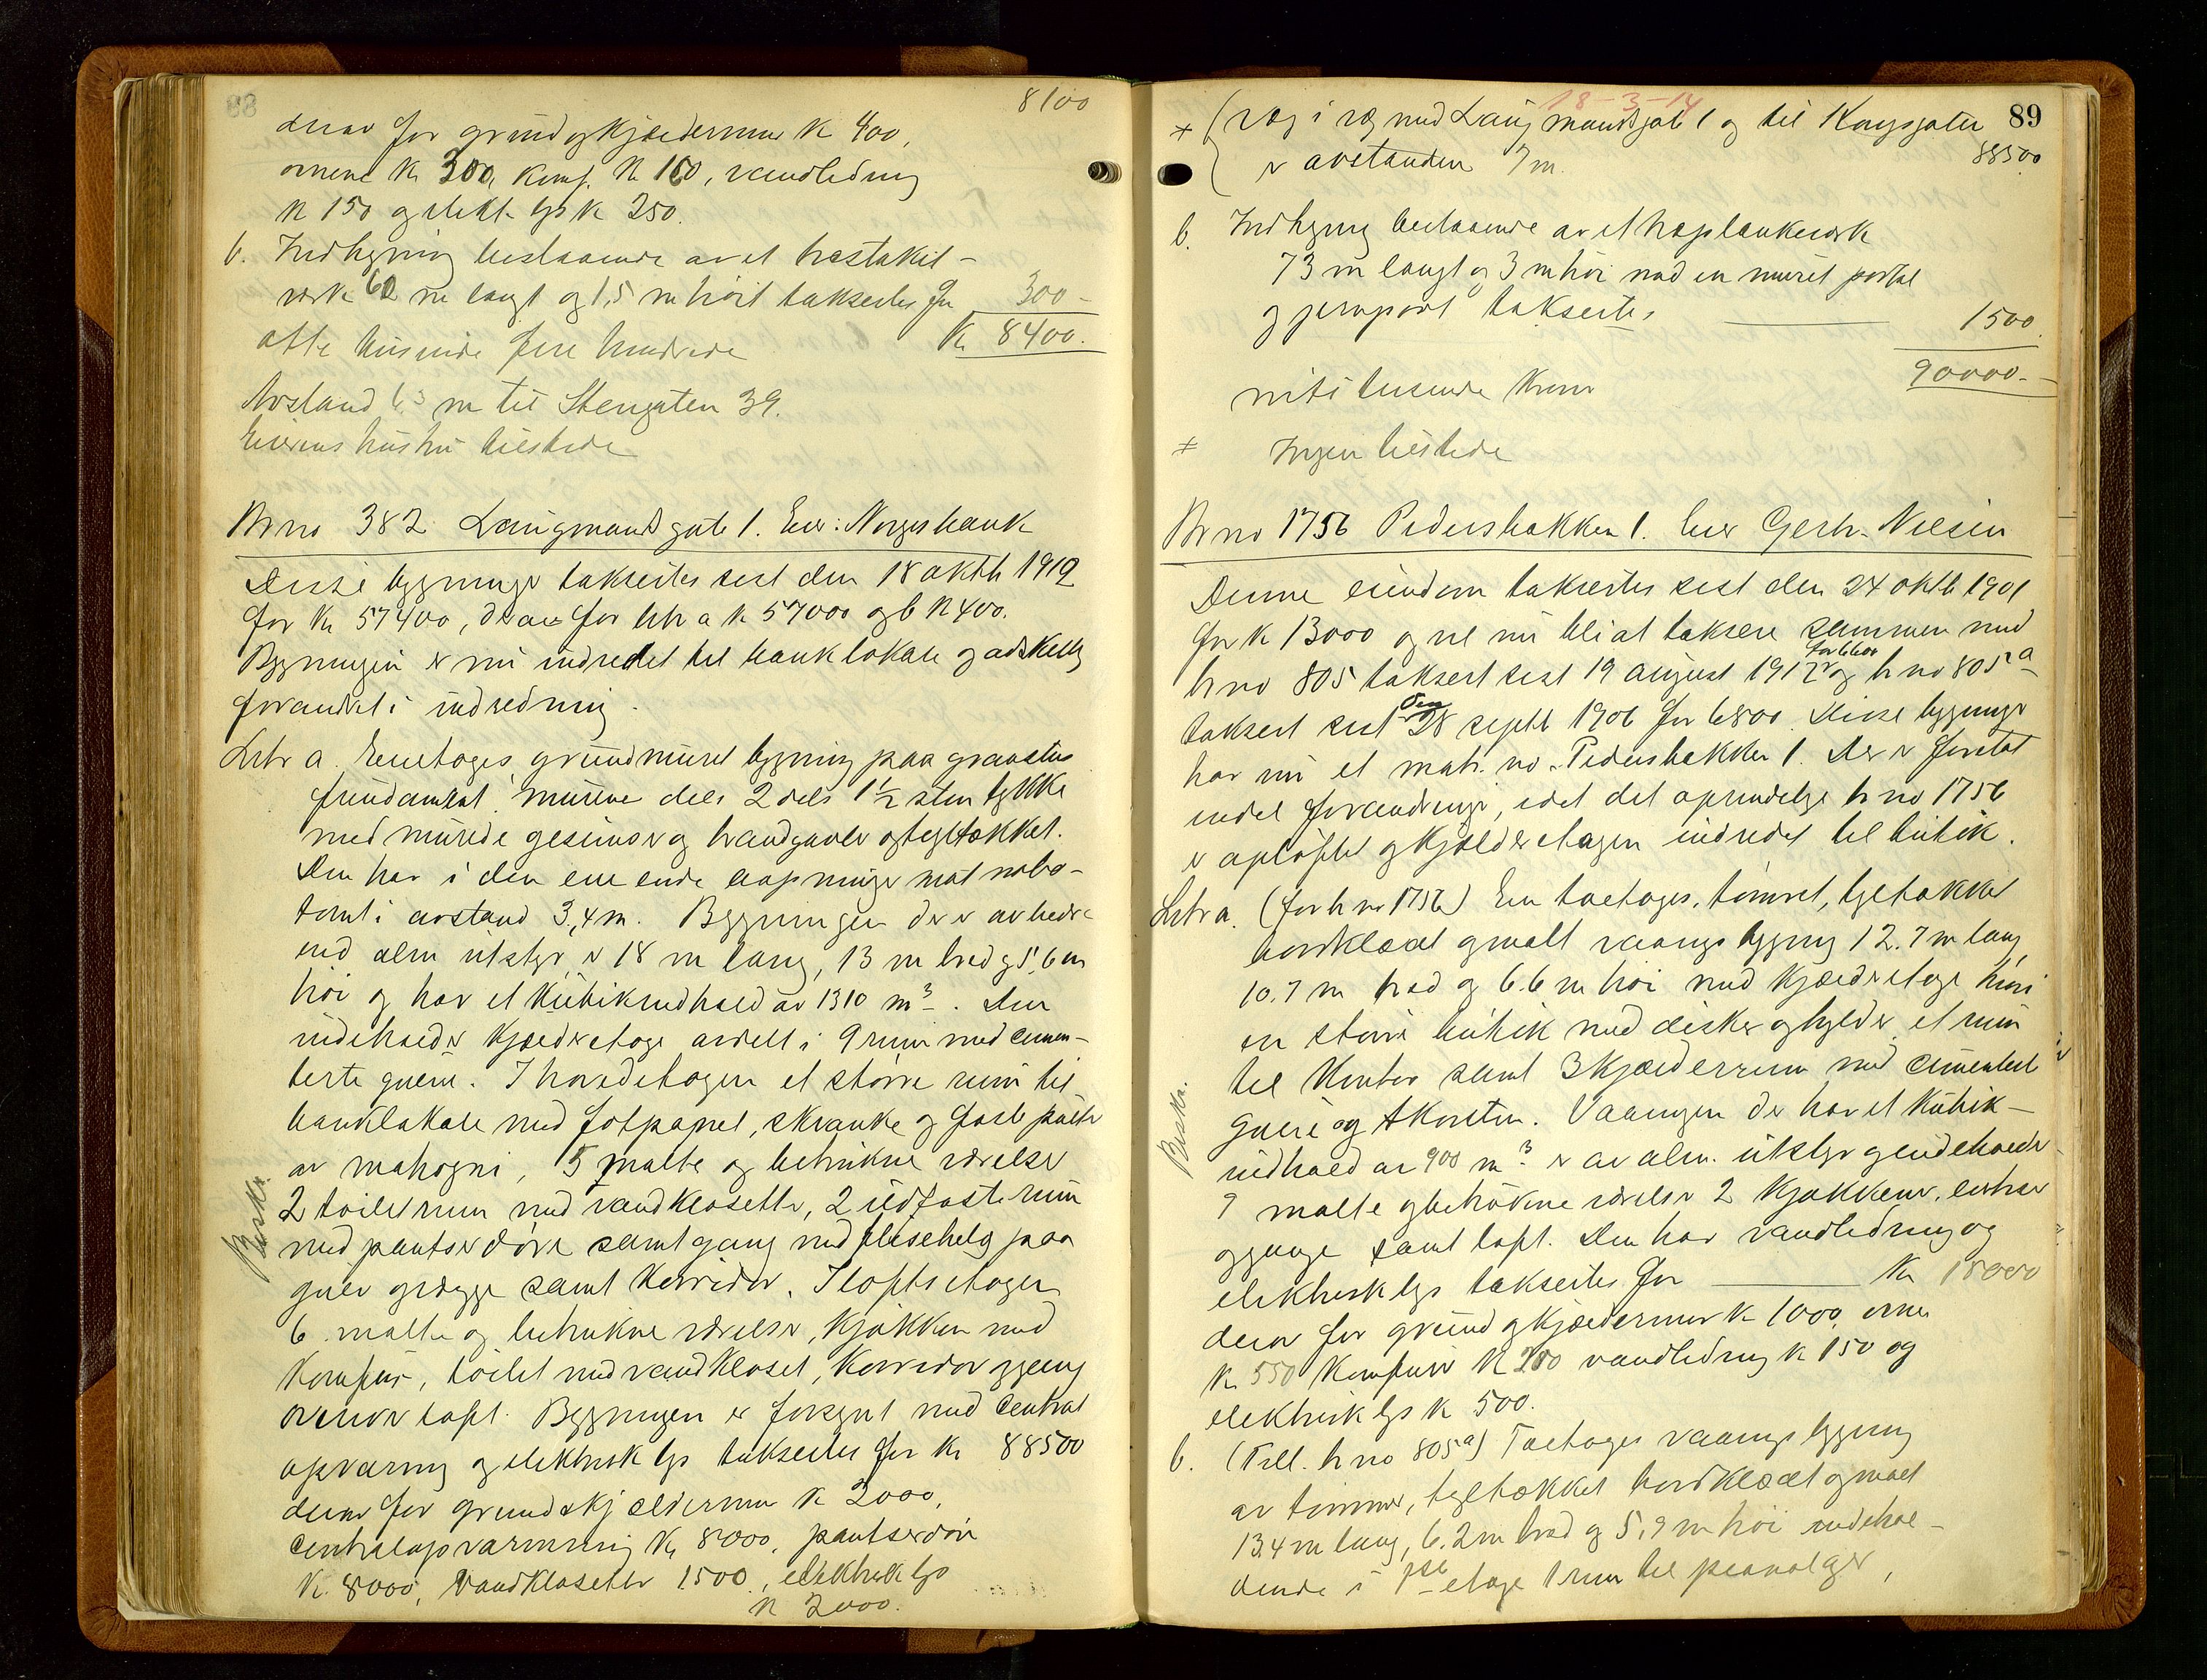 88
8100
derav for grund og kjældermur K 400,
ovnene K 300, komf. K 100, vandledning
K 150 og elekt. lys K 250.
b. Indhegning bestaaende av et træstakit-
verk 60 m langt og 1,5 m høit takseertes for 300-
otte tusinde fire hundrede K 8400.
Avstand 6.3 m til Stengaten 39.
Eierens hustru tilstede
Br no 382 Laugmandsgate 1. Eier: Norges bank
Disse bygninger takseertes sist den 18 oktb 1912
for K 57400, derav for litr a K 57000 og b K 400.
Bygningen er nu indredet til banklokale og adskillig
forandret i indredning.
Litr a. Enetages grundmuret bygning paa graastens
fundament. murene dels 2 dels 1½ sten tykke
med murede gesimser og brandgavler og tegltækket.
Den har i den ene ende aapninger mot nabo-
tomt i avstand 3,4 m. Bygningen der er av bedre
end alm utstyr, er 18 m lang, 13 m bred og 5,6 m
høi og har et kubikindhold av 1310 m³. Den
indeholder kjælderetage avdelt i 9 rum med cemen-
terte gulve. I hovedetagen et større rum til
banklokale med fotpanel, skranke og faste pulte
av mahogni, 5 malte og betrukne værelser
2 toiletrum med vandklosetter, 2 ildfaste rum
med pantserdøre samt gang med flisebelg paa
gulv og vægge samt korridor. I loftsetagen
6 malte og betrukne værelser, kjøkken med
komfur, toilet med vandkloset, korridor og gang
ovenover loft. Bygningen er forsynt med central
opvarmning og elektrisk lys takseertes for Kr 88500
Beskr.
derav for grund & kjældermur K 3000,
centralopvarmning K 8000, pantserdøre
K 8000, Vandklosetter 1500, elektrisk lys
K 2000.
18-3-14
89
+ (væg i væg med Laugmandsgate 1 og til Kongsgaten
er avstanden 7 m.
88500
b. Indhegning bestaaende av et træplankeverk
73 m langt og 3 m høi med en muret portal
og jernport takseertes 1500
nitti tusende kroner 90000.-
+ Ingen tilstede
Br no 1756 Pedersbakken 1. Eier Gerh. Nilsen
Denne eiendom takseertes sist den 24 oktb 1901
for K 13000 og vil nu bli at taksere sammen med
br no 805 taksert sist 19 august 1912 for 6600 og br no 805a
taksert sist den 28 septb 1906 for 6800. Disse bygninger
har nu et matr. no. Pedersbakken 1. Der er foretat
endel forandringer, idet det oprindelige br no 1756
er opløftet og kjælderetagen indredet til butik.
Litr a. (for br no 1756) En toetages, tømret, tegltækket
bordklædt og malt vaaningsbygning 12.7 m lang
10.7 m bred og 6.6 m høi med kjælderetage hvori
en større butik med disker og hylder, et rum
til kontor samt 3 kjælderrum med cementert
gulv og skorsten. Vaaningen der har et kubik-
indhold av 900 m³ er av alm. utstyr og indeholder
9 malte og betrukne værelser 2 kjøkkener, entreer
og gange samt loft. Den har vandledning og
elektrisk lys takseertes for Kr 18000
Beskr.
derav for grund og kjældermur K 1000, ovner
K 550 komfurer K 200 vandledning K 150 og
elektrisk lys K 500.
b. (Till. br no 805a) Toetages vaaningsbygning
av tømmer, tegltækket bordklædt og malt
13.4 m lang, 6.2 m bred og 5.9 m høi indehol-
dende i 1ste etage 1 rum til pianolager,